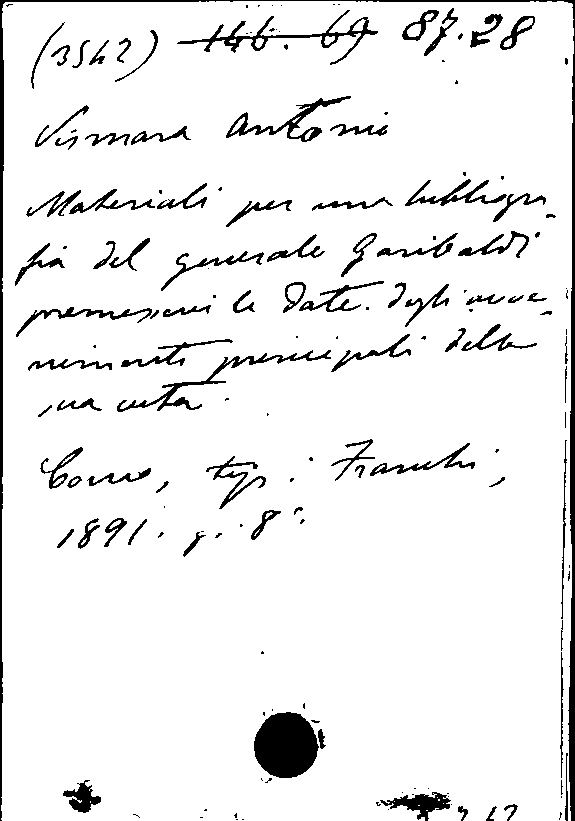 (3542) 146. 69 87.28
Vismara Antonio
Materiali per una bibliogra-
fia del generale Garibaldi
premessevi le date degli avve-
nimenti principali della
sua vita.
Como, tip. Franchi,
1891. g. 8°.